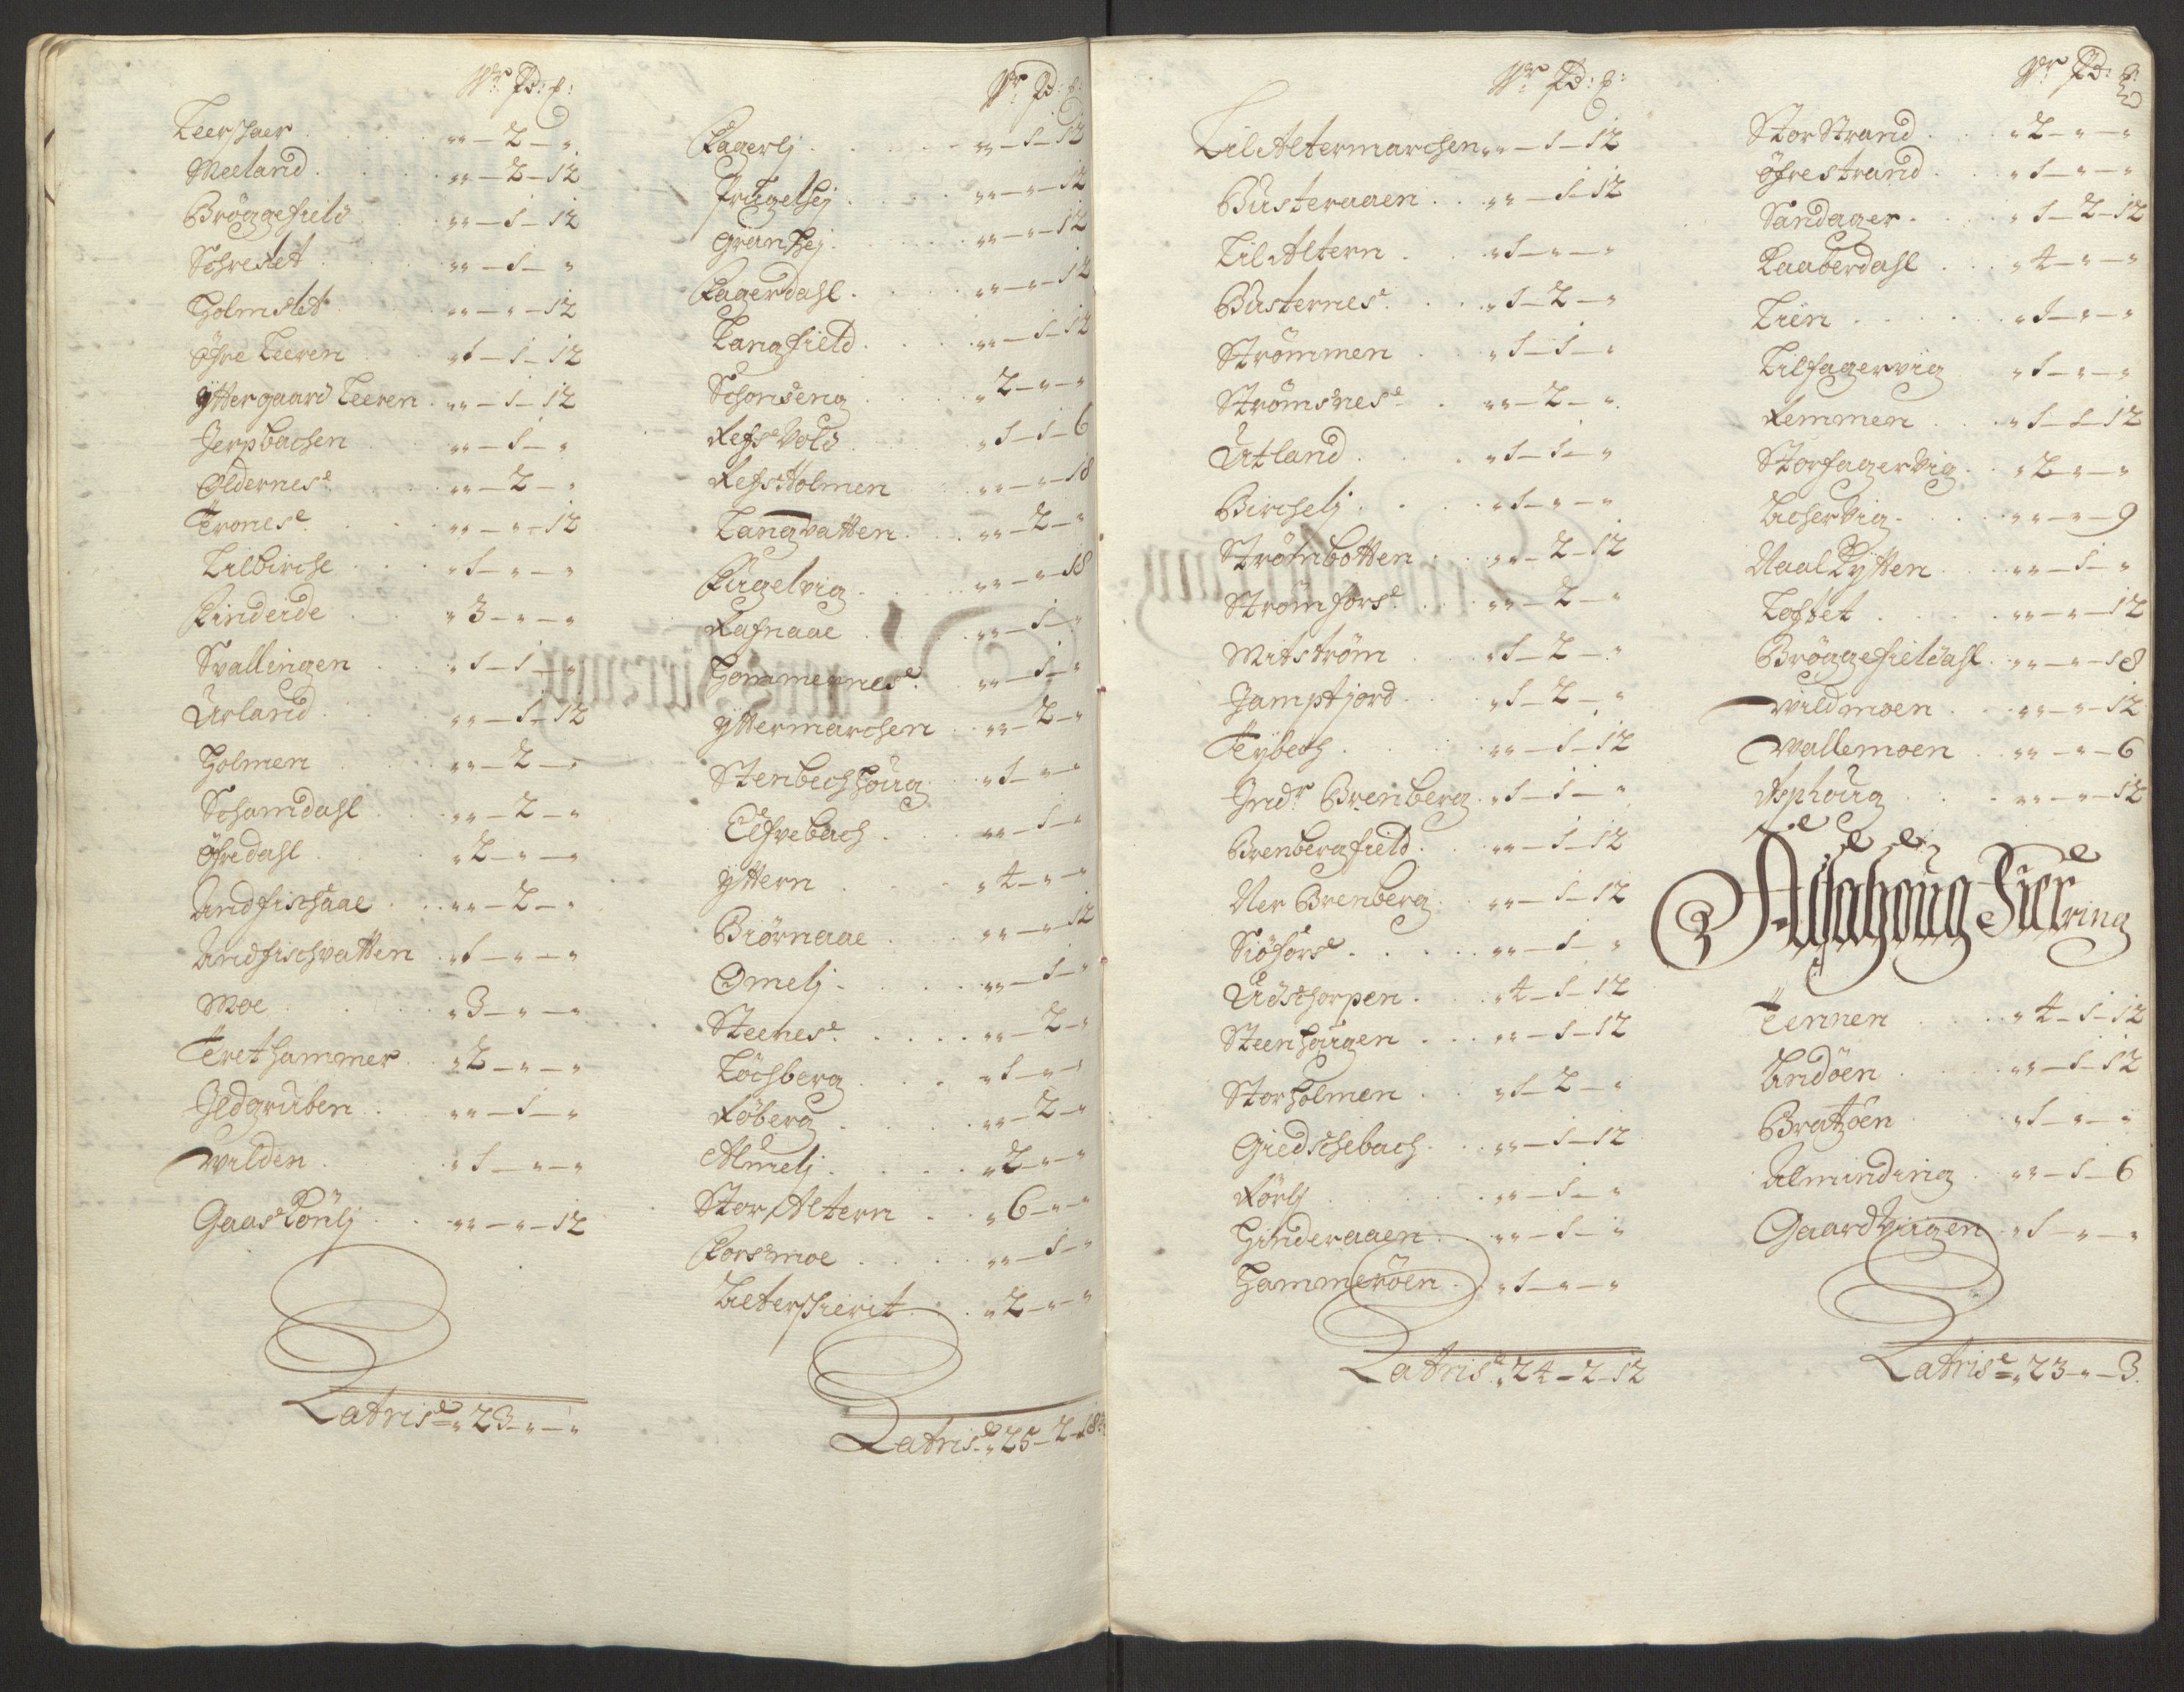 Wr Pd: ß:
Leerschaer . . . „„ — 2 — „
Meeland . . . „„ — 2 — 12
Brøggefield . „„ — 1 — 12
Schreslet . . „„ — 1 — „
Holmslet . . „„ — „ — 12
Øfre Leeren . . „1 — 1 — 12
Yttergaard Leeren . „„ — 1 — 12
Jerpbachen . . „„ — 1 — „
Oldernes . . „„ — 2 — „
Trones . . . „„ — „ — 12
Lilbirche . . . „1 — „ — „
Finderde . . „3 — „ — „
Svallingen . . „1 — 1 — „
Urland . . . „„ — 1 — 12
Holmen . . „„ — 2 — „
Schamdahl . . „„ — 2 — „
Øfredahl . . „2 — „ — „
Andfischaae . . „„ — 2 — „
Andfischvatten . „1 — „ — „
Moe . . . „3 — „ — „
Trethammer . „2 — „ — „
Jldgruben . . „„ — 1 — „
Wilden . . . „1 — „ — „
Gaas Rönlj . . „„ — „ — 12
Latris „23 — „ — „
Wr Pd: ß:
Fagerlj . . . „„ — 1 — 12
Frugelhej . . „„ — „ — 12
Granhej . . „„ — „ — 12
Fagerdahl . . „„ — „ — 12
Langfield . . „„ — 1 — 12
Schonseng . . „2 — „ — „
Refs Vold . . „1 — 1 — 6
Refs Holmen . „„ — „ — 18
Langvatten . . „„ — 2 — „
Fugelvig . . „„ — „ — 18
Rafnaae . . „„ — 1 — „
Hommernes . „„ — 1 — „
Yttermarchen . „„ — 2 — „
Stenbechhoug . „1 — „ — „
Elfvebach . . „„ — 1 — „
Yttern . . . „4 — „ — „
Biørnaae . . „„ — „ — 12
Omelj . . . „„ — 1 — „
Steenes . . . „„ — 2 — „
Løchberg . . „1 — „ — „
Røberg . . . „„ — 2 — „
Almelj . . . „2 — „ — „
Stor Altern . . „6 — „ — „
Forsmoe . . „„ — 1 — „
Latris „25 — 2 — 18
Wr Pd: ß:
Lil Altermarchen „„ — 1 — 12
Busteraaen . . „„ — 1 — 12
Lil Altern . . „1 — „ — „
Busternes . . „1 — 2 — „
Strømmen . . „1 — 1 — „
Strømsnes . „„ — 2 — „
Utland . . „1 — 1 — „
Birchelj . . „1 — „ — „
Strømbotten . „„ — 2 — 12
Strømfors . „„ — 2 — „
Mitstrøm . . „1 — 2 — „
Jamptjord . . „1 — 2 — „
Teybech . . „„ — 1 — 12
Jndr Brenberg . „1 — 1 — „
Brenbergfield . „„ — 1 — 12
Ner Brenberg . „„ — 1 — 12
Siøfors . . . „„ — 1 — „
Udschorpen . . „4 — 1 — 12
Steenhaugen . . „„ — 1 — 12
Storholmen . . „1 — 2 — „
Giedschebach . „„ — 1 — 12
Rörlj . . . „„ — 1 — „
Hinderaaen . . „„ — 1 — „
Hammerøen . „1 — „ — „
Latris „24 — 2 — 12
Wr Pd: ß:
Stor Strand . . „2 — „ — „
Øfrestrand . . „1 — „ — „
Sandager . . „1 — 2 — 12
Raaberdahl . . „4 — „ — „
Lien . . . „1 — „ — „
Lilfagervig . „1 — „ — „
Remmen . . „1 — 1 — 12
Storfagervig . „2 — „ — „
Achervig . . „„ — „ — 9
Naal Rytten . „„ — 1 — „
Loftet . . . „„ — „ — 12
Brøggefieldahl . „„ — „ — 18
Wildmoen . . „„ — „ — 12
Wallemoen . „„ — „ — 6
Asphoug . . „„ — „ — 12
Alsahoug Fierring
Tennen . . „4 — 1 — 12
Andøen . . „„ — 1 — 12
Bratøen . . „1 — „ — „
Alminding . „„ — 1 — 6
Gaardviigen „1 — „ — „
Latris „23 — „ — 3